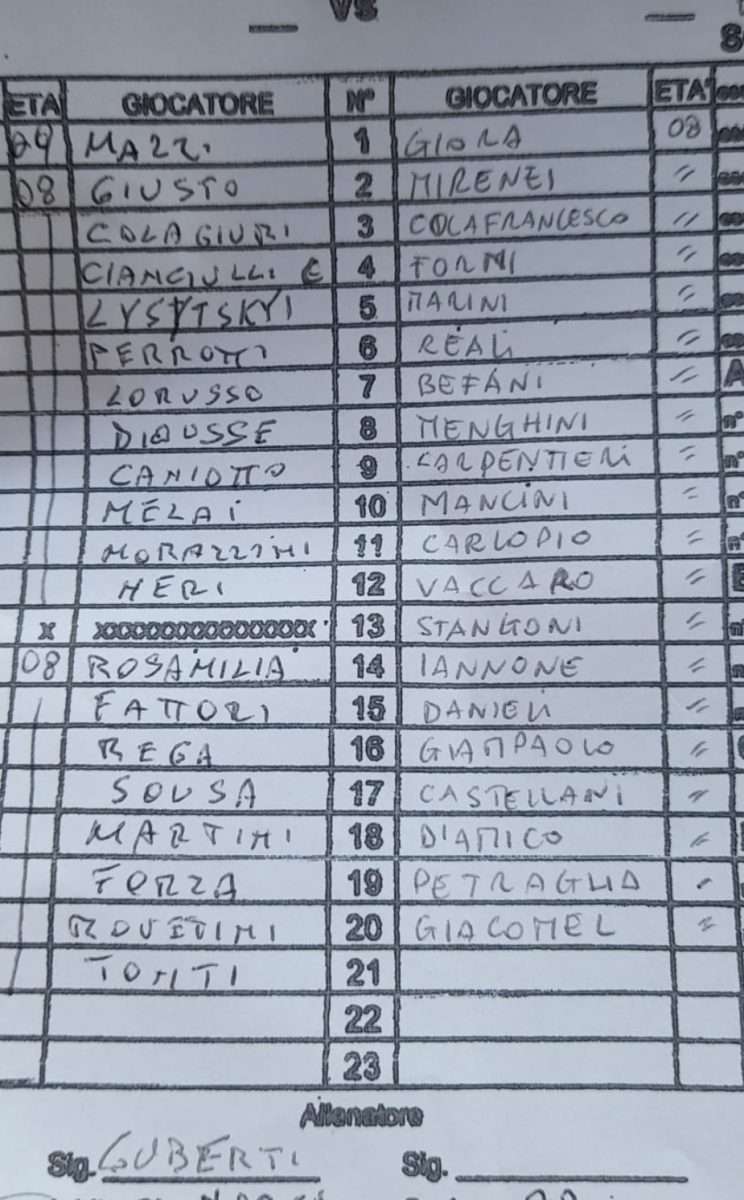 __ VS __
ETA GIOCATORE N° GIOCATORE ETA'
09 MAZZI 1 GIORA 08
08 GIUSTO 2 MIRENZI "
COLAGIURI 3 COLAFRANCESCO "
CIANCIULLI E 4 FORMI "
LYSYTSKYI 5 MARINI "
PERROTTI 6 REALI "
LORUSSO 7 BEFANI "
DIOUSSE 8 MENGHINI "
CANIOTTO 9 CARPENTIERI "
MELAI 10 MANCINI "
MORAZZINI 11 CARLOPIO "
NERI 12 VACCARO "
X XXXXXXXXXXXXXXXX 13 STANGONI "
08 ROSAMILIA 14 IANNONE "
FATTORI 15 DANIELI "
REGA 16 GIAMPAOLO "
SOUSA 17 CASTELLANI "
MARTINI 18 D'AMICO "
FORZA 19 PETRAGLIA "
20 GIACOMEL "
TONTI 21
22
23
Allenatore
Sig. GUBERTI Sig.